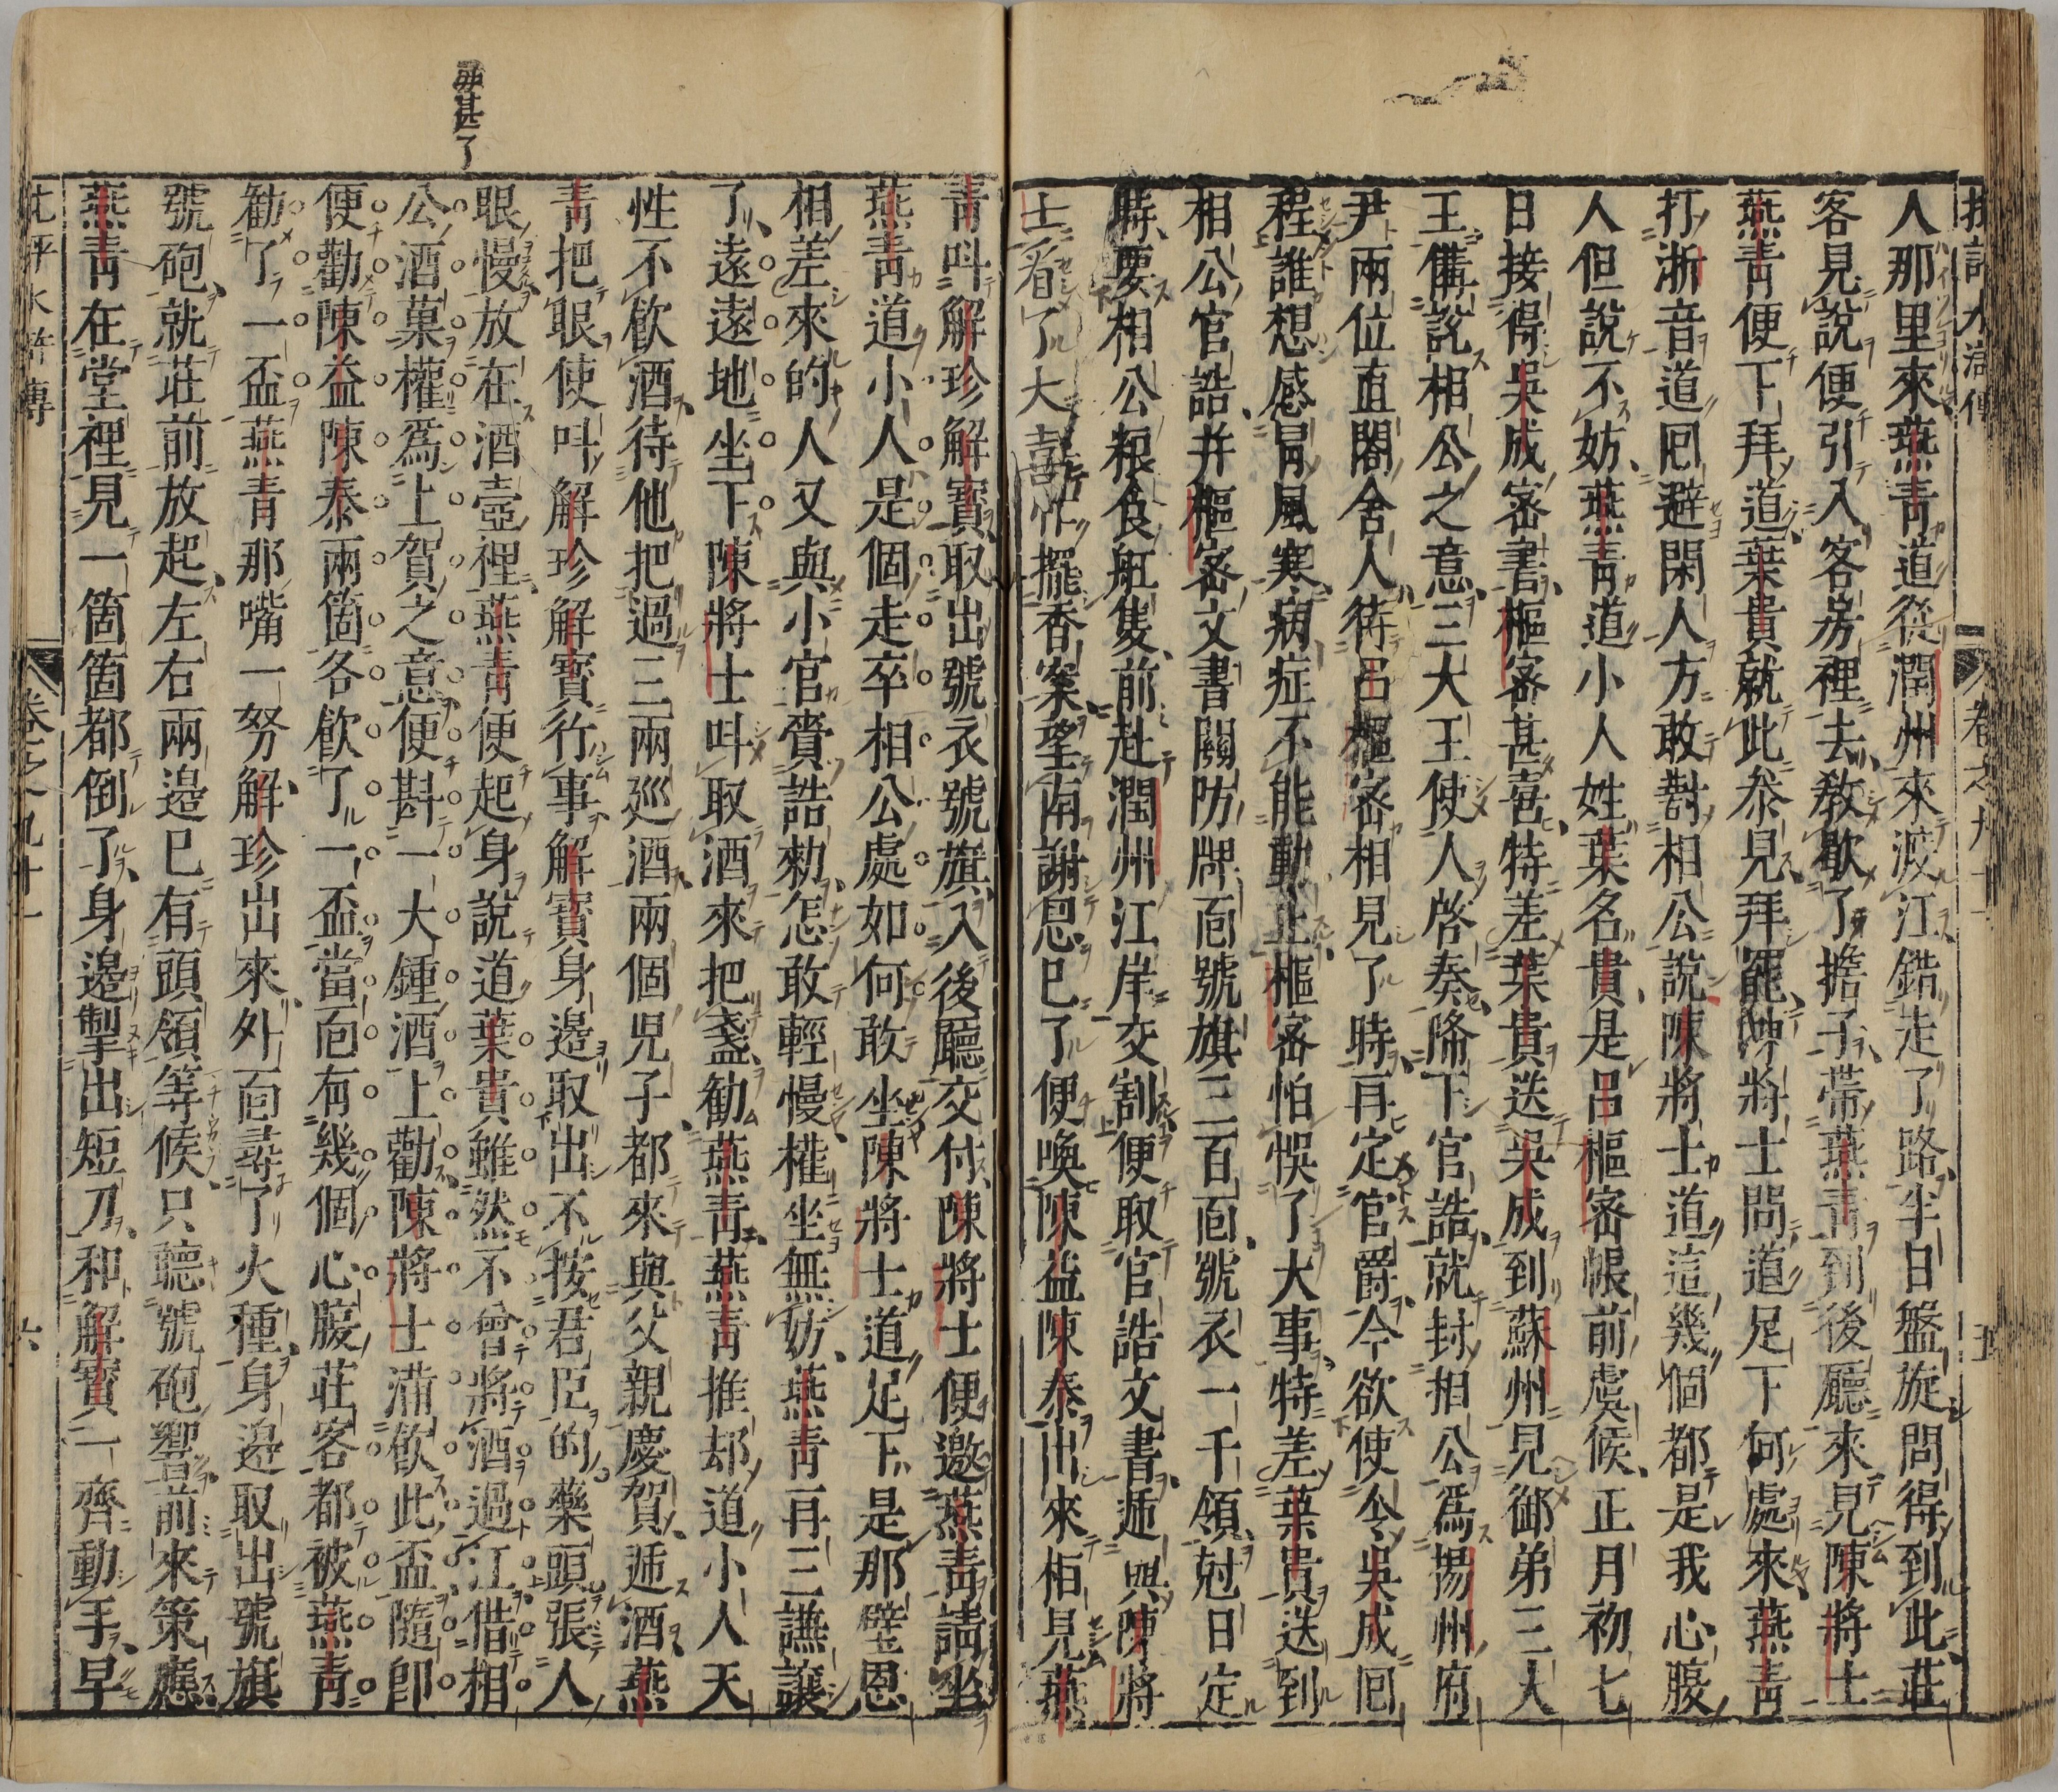 人那里來燕青道從潤州來渡江錯走了路半日盤旋問得到此莊
客見說便引入客房裡去教歇了擔子帶燕青到後廳來見陳將士
燕青便下拜道葉貴就此參見拜罷陳將士問道足下何處來燕青
打浙音道囘避閑人方敢對相公說陳將士道這幾個都是我心腹
人但說不妨燕青道小人姓葉名貴是呂樞密帳前虞候正月初七
日接得吳成密書樞密甚喜特差葉貴送吳成到蘇州見御弟三大
王備說相公之意三大王使人啓奏降下官誥就封相公爲揚州府
尹兩位直閣舍人待呂樞密相見了時再定官爵今欲使令吳成囘
程誰想感冒風寒病症不能動止樞密怕悞了大事特差葉貴送到
相公官誥并樞密文書關防牌面號旗三百面號衣一千領尅日定
時要相公粮食舡隻前赴潤州江岸交割便取官誥文書遞與陳將
士看了大喜忙擺香案望南謝恩已了便喚陳益陳泰出來相見燕
青呌解珍解寶取出號衣號旗入後廳交付陳將士便邀燕青請坐
燕青道小人是個走卒相公處如何敢坐陳將士道足下是那壁恩
相差來的人又與小官賫誥勅怎敢輕慢權坐無妨燕青再三謙讓
了遠遠地坐下陳將士呌取酒來把盞勸燕青燕青推却道小人天
性不飲酒待他把過三兩廵酒兩個兒子都來與父親慶賀遞酒燕
青把眼使呌解珍解寶行事解寶身邊取出不按君臣的藥頭張人
眼慢放在酒壺裡燕青便起身說道葉貴雖然不曾將酒過江借相
公酒菓權爲上賀之意便斟一大鍾酒上勸陳將士滿飲此盃隨卽
便勸陳益陳泰兩箇各飲了一盃當面有幾個心腹莊客都被燕青
勸了一盃燕青那嘴一努解珍出來外面尋了火種身邊取出號旗
號砲就莊前放起左右兩邊已有頭領等候只聽號砲響前來策應
燕青在堂裡見一箇箇都倒了身邊掣出短刀和解寶一齊動手早